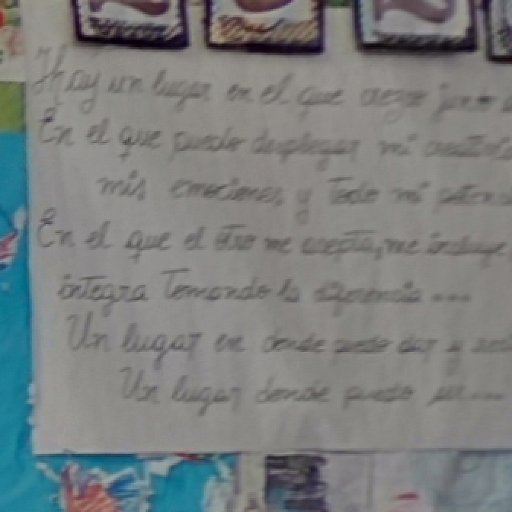 Hay un lugar en el que crezco junto a
En el que puedo desplegar mi
mis emociones y todo mi
En el que el otro me acepta, me incluye,
integra Tomando la diferencia ...
Un lugar en donde puedo dar y
Un lugar donde puedo ser ...